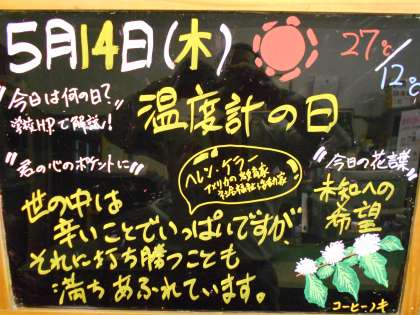 5月14日(木)
27℃/12℃
"今日は何の日?"
学校HPで解説!
温度計の日
"君の心のポケットに"
ヘレン・ケラー
アメリカの
"今日の花言葉"
未知への
希望
世の中は
辛いことでいっぱいですが、
それに打ち勝つことも
満ちあふれています。
コーヒーノキ